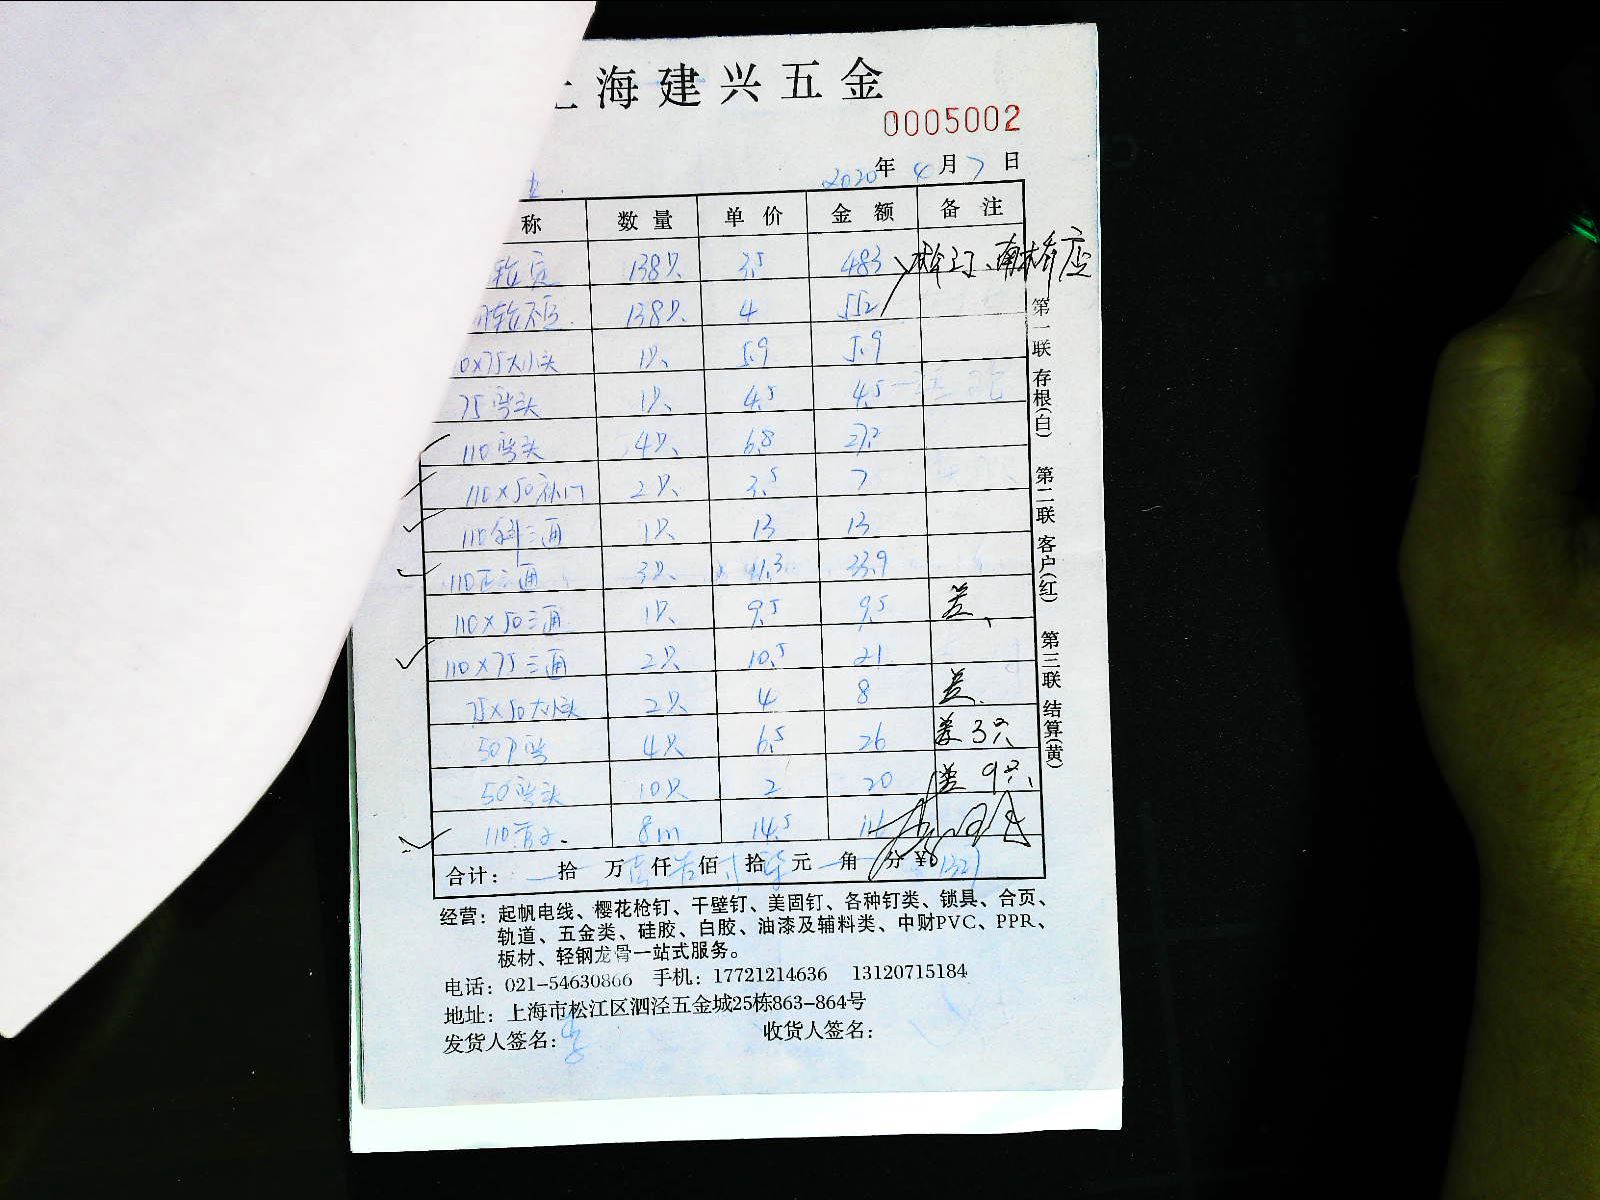 上海建兴五金
0005002
2020年4月7日
称 数量 单价 金额 备注
138只 3.5 483
138只 4 552
0×75大小头 1只 5.9 5.9
75弯头 1只 4.5 4.5
110弯头 4只 6.8 27.2
110×50补门 2只 3.5 7
110斜三通 1只 13 13
110正三通 3只 11.3 33.9
110×50三通 1只 9.5 9.5 差
110×75三通 2只 10.5 21
75×50大小头 2只 4 8 差
50P弯 4只 6.5 26 差3只
50弯头 10只 2 20 差9只
110管子 8m 14.5
合计: 拾 万 仟 佰 拾 元 角 分 ¥
第一联 存根(白) 第二联 客户(红) 第三联 结算(黄)
经营: 起帆电线、樱花枪钉、干壁钉、美固钉、各种钉类、锁具、合页、
轨道、五金类、硅胶、白胶、油漆及辅料类、中财PVC、PPR、
板材、轻钢龙骨一站式服务。
电话: 021-54630866 手机: 17721214636 13120715184
地址: 上海市松江区泗泾五金城25栋863-864号
发货人签名: 收货人签名: